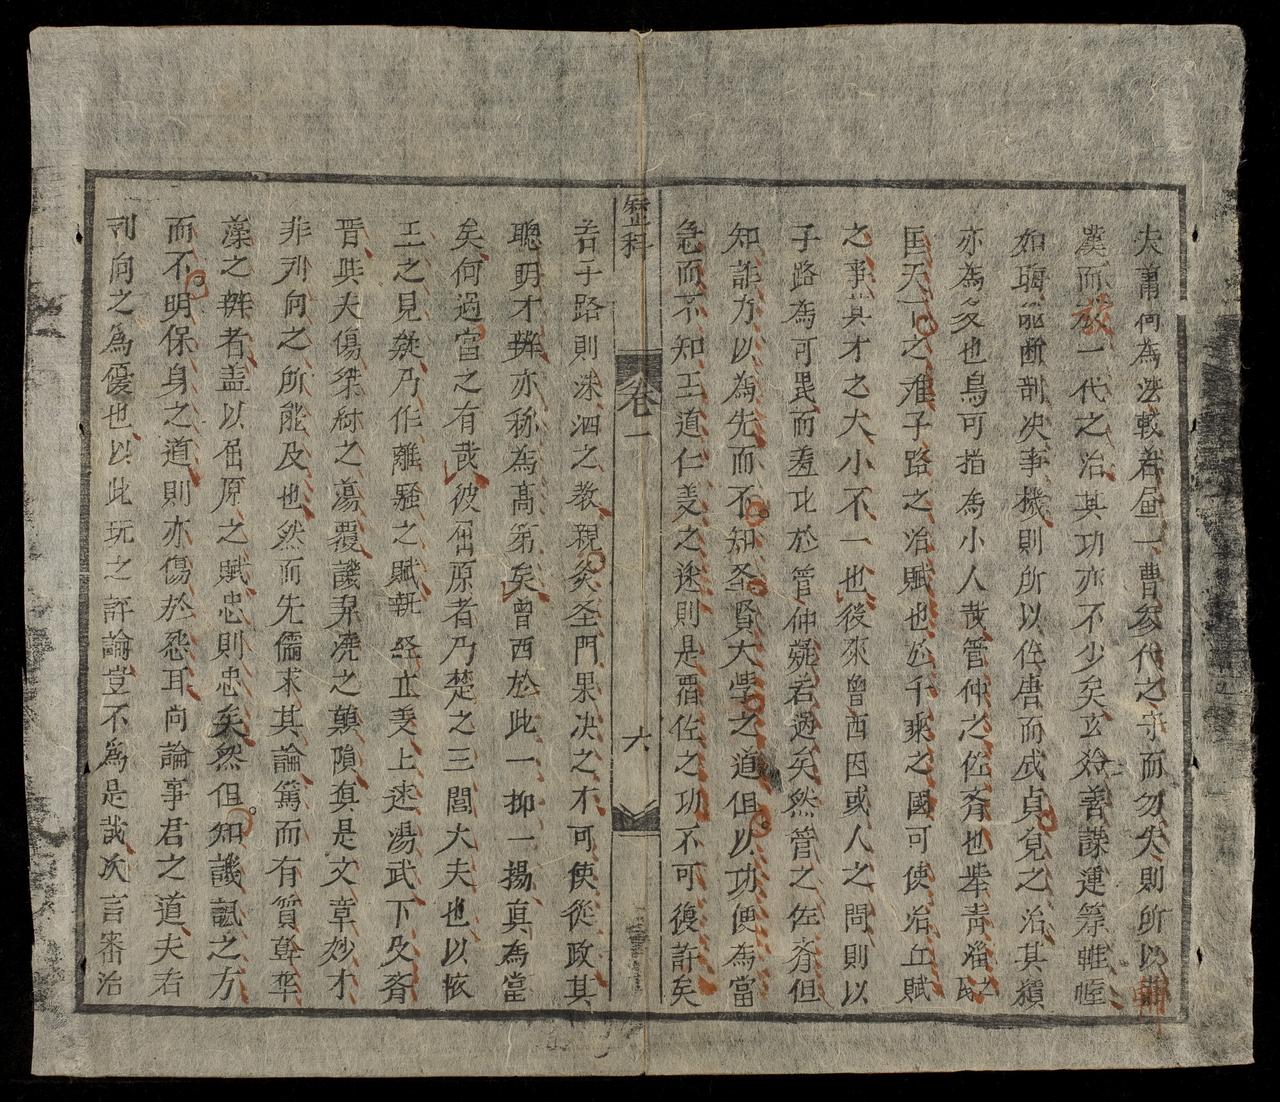 夫蕭何為法較若畫一曹參代之守而勿失則所以輔
漢而致一代之治其功亦不少矣玄齡善謀運筹帷幄
如晦能断剖决事机則所以佐唐而成貞覌之治其績
亦為多也烏可指為小人哉管仲之佐齐也举青淄民之
匡天下之难子路之治賦也於千乘之國可使治丘賦
之事其才之大小不一也後來曾西因或人之問則以
子路為可畏而羞比於管仲疑若過矣然管之佐齐但
知詐力以為先而不知圣賢大學之道但以功便為當
急而不知王道仁义之途則是覇佐之功不可復許矣
歷科
卷一
六
若子路則洙泗之教親炙圣門果决之才可使從政其
聰明才辨亦称為髙第矣曾西於此一抑一揚真為當
矣何過當之有哉彼屈原者乃楚之三閭大夫也以依
工之見疑乃作離騷之賦 立义上述湯武下及齐
晋與夫傷桀紂之蕩覆譏羿澆之顛隕真是文章妙才
非列向之所能及也然而先儒求其論篤而有質
藻之辨者盖以屈原之賦忠則忠矣然但知譏諷之方
而不明保身之道則亦傷於怨耳向論事君之道夫君
刘向之為優也以此玩之評論豈不為是哉次言審治